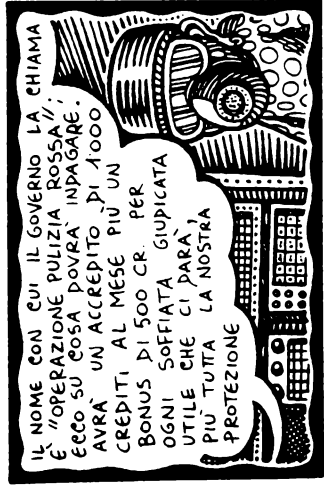 IL NOME CON CUI IL GOVERNO LA CHIAMA
È "OPERAZIONE PULIZIA ROSSA";
ECCO SU COSA DOVRÀ INDAGARE.
AVRÀ UN ACCREDITO DI 1000
CREDITI AL MESE PIÙ UN
BONUS DI 500 CR. PER
OGNI SOFFIATA GIUDICATA
UTILE CHE CI DARÀ,
PIÙ TUTTA LA NOSTRA
PROTEZIONE